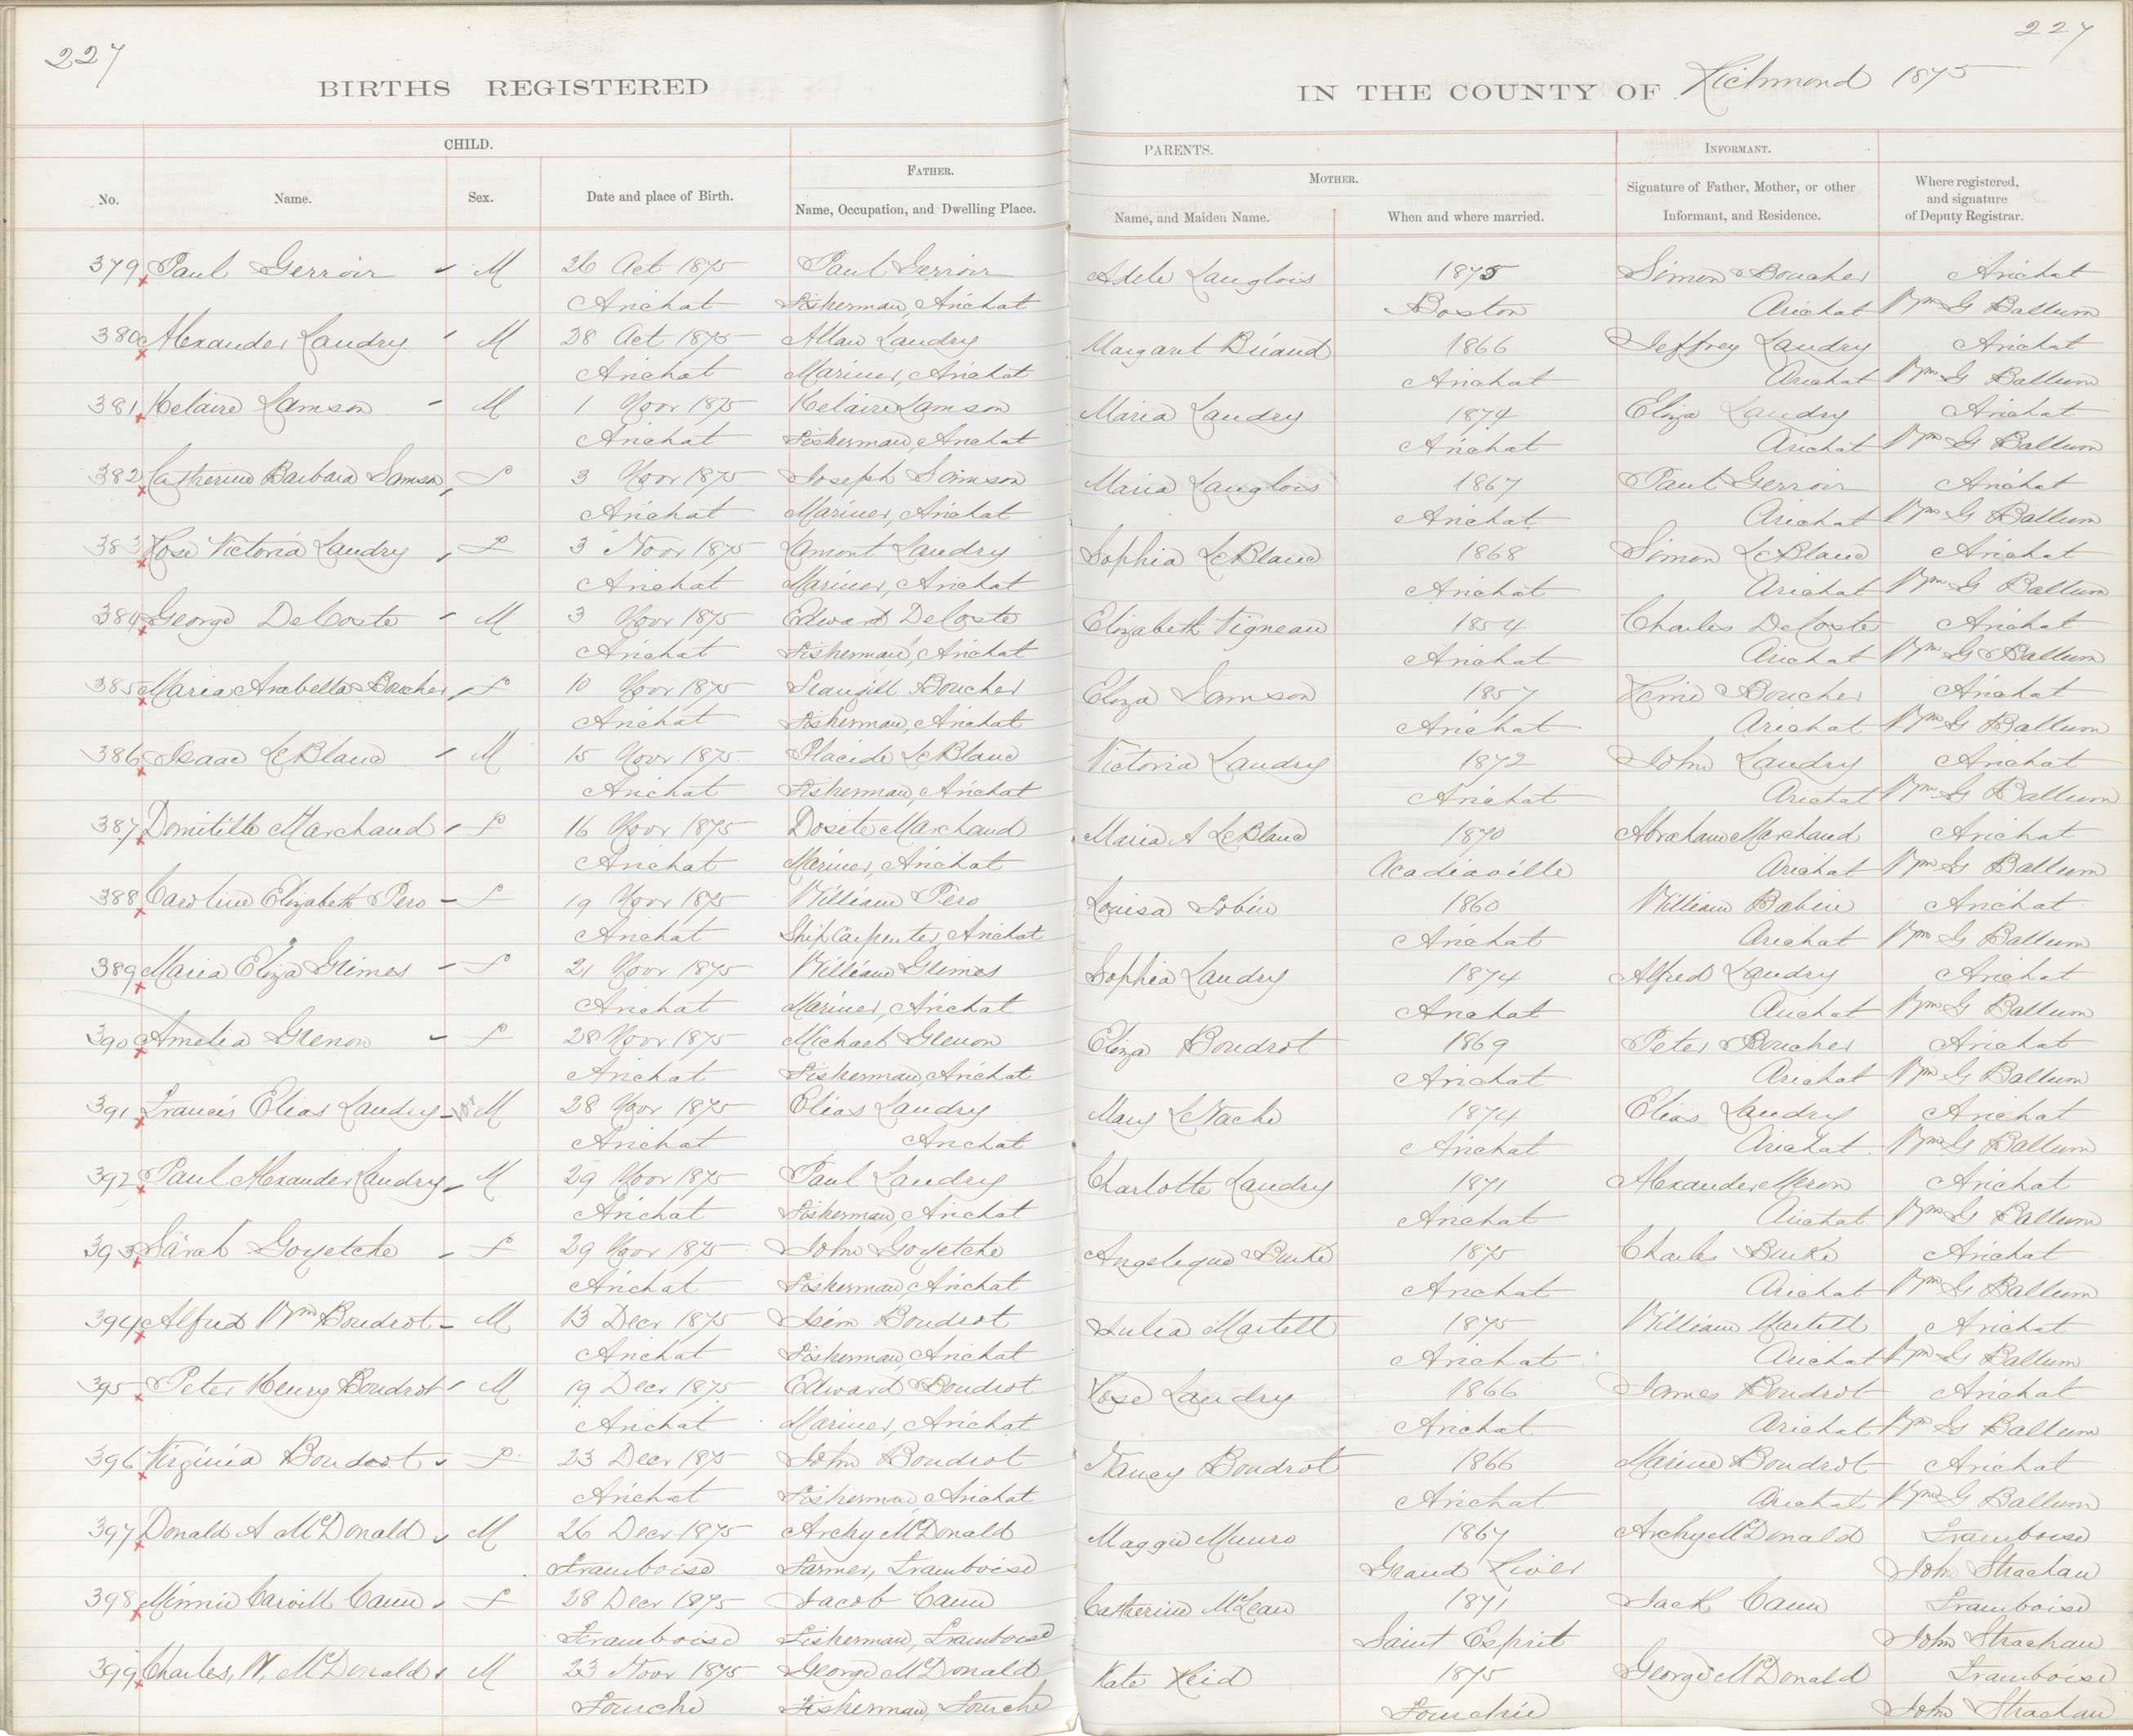 227
227
BIRTHS REGISTERED
IN THE COUNTY OF Richmond 1875
CHILD.
PARENTS.
INFORMANT.
FATHER.
MOTHER.
No.
Name.
Sex.
Date and place of Birth.
Name, Occupation, and Dwelling Place.
Name, and Maiden Name.
When and where married.
Signature of Father, Mother, or other
Informant, and Residence.
Where registered,
and signature
of Deputy Registrar.
379 Paul Gerroir - M 26 Oct 1875 Paul Gerroir Adele Langlois 1875 Simon Boucher Arichat
Arichat Fisherman, Arichat Boston Arichat Wm G Ballum
380 Alexander Landry - M 28 Oct 1875 Allan Landry Margaret Briand 1866 Jeffrey Landry Arichat
Arichat Mariner, Arichat Arichat Arichat Wm G Ballum
381 Helaire Samson - M 1 Novr 1875 Helaire Samson Maria Landry 1874 Eliza Landry Arichat
Arichat Fisherman, Arichat Arichat Arichat Wm G Ballum
382 Catherine Barbara Samson F 3 Novr 1875 Joseph Samson Maria Langlois 1867 Paul Gerroir Arichat
Arichat Mariner, Arichat Arichat Arichat Wm G Ballum
383 Rose Victoria Landry F 3 Novr 1875 Lamont Landry Sophia LeBlanc 1868 Simon LeBlanc Arichat
Arichat Mariner, Arichat Arichat Arichat Wm G Ballum
384 George DeCoste - M 3 Novr 1875 Edward DeCoste Elizabeth Vigneau 1854 Charles DeCoste Arichat
Arichat Fisherman, Arichat Arichat Arichat Wm G Ballum
385 Maria Arabella Boucher F 10 Novr 1875 Boucher Eliza Samson 1857 Boucher Arichat
Arichat Fisherman, Arichat Arichat Arichat Wm G Ballum
386 Isaac LeBlanc - M 15 Novr 1875 Placide LeBlanc Victoria Landry 1872 John Landry Arichat
Arichat Fisherman, Arichat Arichat Arichat Wm G Ballum
387 Domitille Marchand - F 16 Novr 1875 Dosite Marchand Maria A LeBlanc 1870 Abraham Marchand Arichat
Arichat Mariner, Arichat Acadiaville Arichat Wm G Ballum
388 Caroline Elizabeth Pero - F 19 Novr 1875 William Pero Louisa Bobin 1860 William Babin Arichat
Arichat Ship Carpenter, Arichat Arichat Arichat Wm G Ballum
389 Maria Eliza Grimes - F 21 Novr 1875 William Grimes Sophia Landry 1874 Alfred Landry Arichat
Arichat Mariner, Arichat Arichat Arichat Wm G Ballum
390 Amelia Grenon - F 28 Novr 1875 Michael Grenon Eliza Boudrot 1869 Peter Boucher Arichat
Arichat Fisherman, Arichat Arichat Arichat Wm G Ballum
391 Francis Elias Landry - M 28 Novr 1875 Elias Landry Mary LeNache 1874 Elias Landry Arichat
Arichat Arichat Arichat Arichat Wm G Ballum
392 Paul Alexander Landry - M 29 Novr 1875 Paul Landry Charlotte Landry 1871 Alexander Arichat
Arichat Fisherman, Arichat Arichat Arichat Wm G Ballum
393 Sarah Goyetche - F 29 Novr 1875 John Goyetche Angelique Burke 1875 Charles Burke Arichat
Arichat Fisherman, Arichat Arichat Arichat Wm G Ballum
394 Alfred Wm Boudrot - M 13 Decr 1875 Boudrot Julia Martell 1875 William Martell Arichat
Arichat Fisherman, Arichat Arichat Arichat Wm G Ballum
395 Peter Henry Boudrot - M 19 Decr 1875 Edward Boudrot Rose Landry 1866 James Boudrot Arichat
Arichat Mariner, Arichat Arichat Arichat Wm G Ballum
396 Virginia Boudrot - F 23 Decr 1875 John Boudrot Nancy Boudrot 1866 Boudrot Arichat
Arichat Fisherman, Arichat Arichat Arichat Wm G Ballum
397 Donald A McDonald M 26 Decr 1875 Archy McDonald Maggie Munro 1867 Archy McDonald Framboise
Framboise Farmer, Framboise Grand River John Strachan
398 Minnie Carvill Cann F 28 Decr 1875 Jacob Cann Catherine McLean 1871 Jack Cann Framboise
Framboise Fisherman, Framboise Saint Esprit John Strachan
399 Charles, W, McDonald M 23 Novr 1875 George McDonald Kate Reid 1875 George McDonald Framboise
Fouche Fisherman, Fouche Fourchie John Strachan